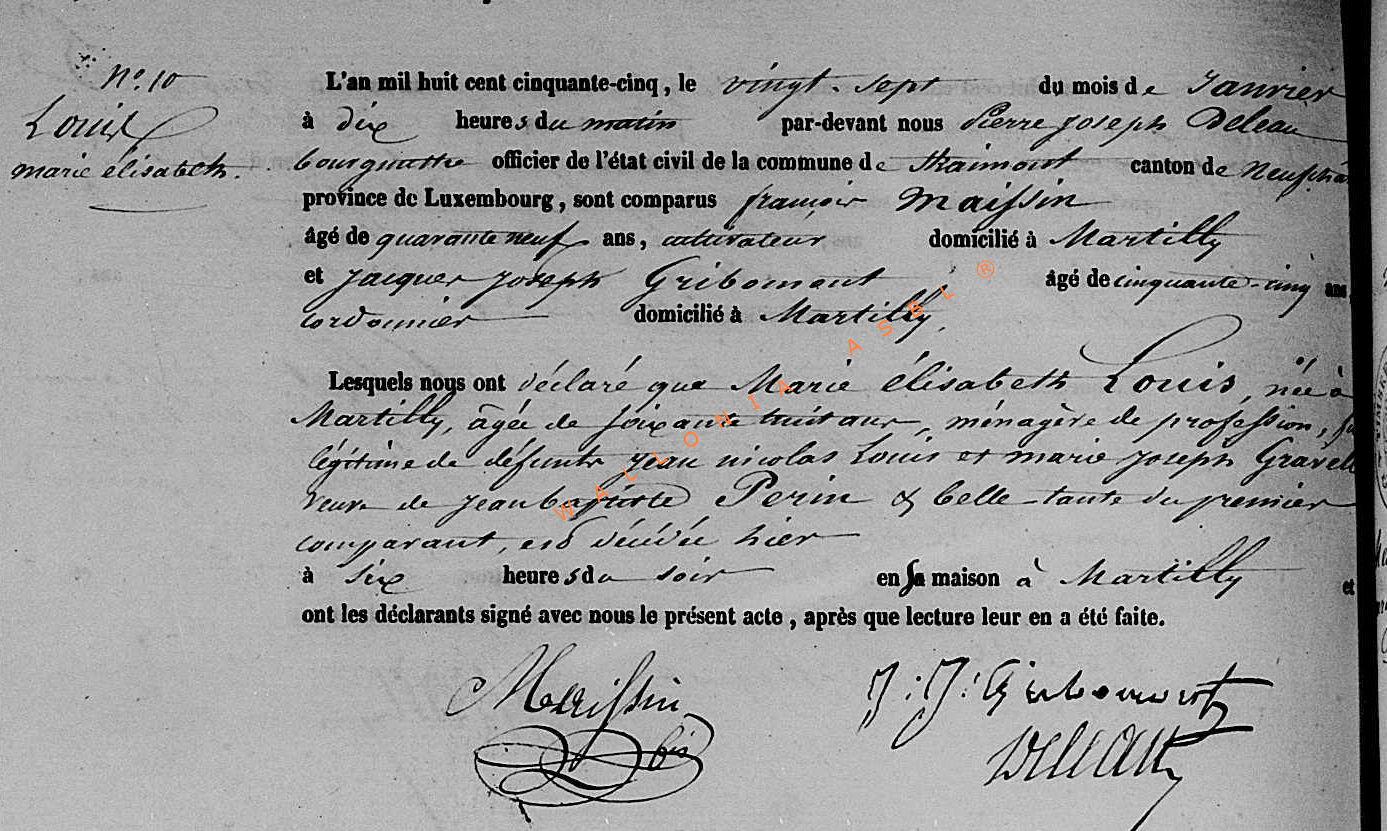 N.° 10
Louis
marie élisabeth.
L'an mil huit cent cinquante-cinq, le vingt-sept du mois de Janvier
à dix heures du matin par-devant nous Pierre Joseph Deleau
bourgmestre officier de l'état civil de la commune de Straimont canton de Neufchâ
province de Luxembourg, sont comparus françois Maissin
âgé de quarante neuf ans, cultivateur domicilié à Martilly
et Jacques Joseph Gribomont âgé de cinquante-cinq ans,
cordonnier domicilié à Martilly,
Lesquels nous ont déclaré que Marie élisabeth Louis, née à
Martilly, âgée de soixante huit ans, ménagère de profession,
légitime de défunts Jean nicolas Louis et marie Joseph Gravell
veuve de Jean baptiste Perin & belle-tante du premier
comparant, est décédée hier
à six heures du soir en sa maison à Martilly et
ont les déclarants signé avec nous le présent acte, après que lecture leur en a été faite.
Maissin
J: J: Gribomont
Deleau
WALLONIA ASBL ®